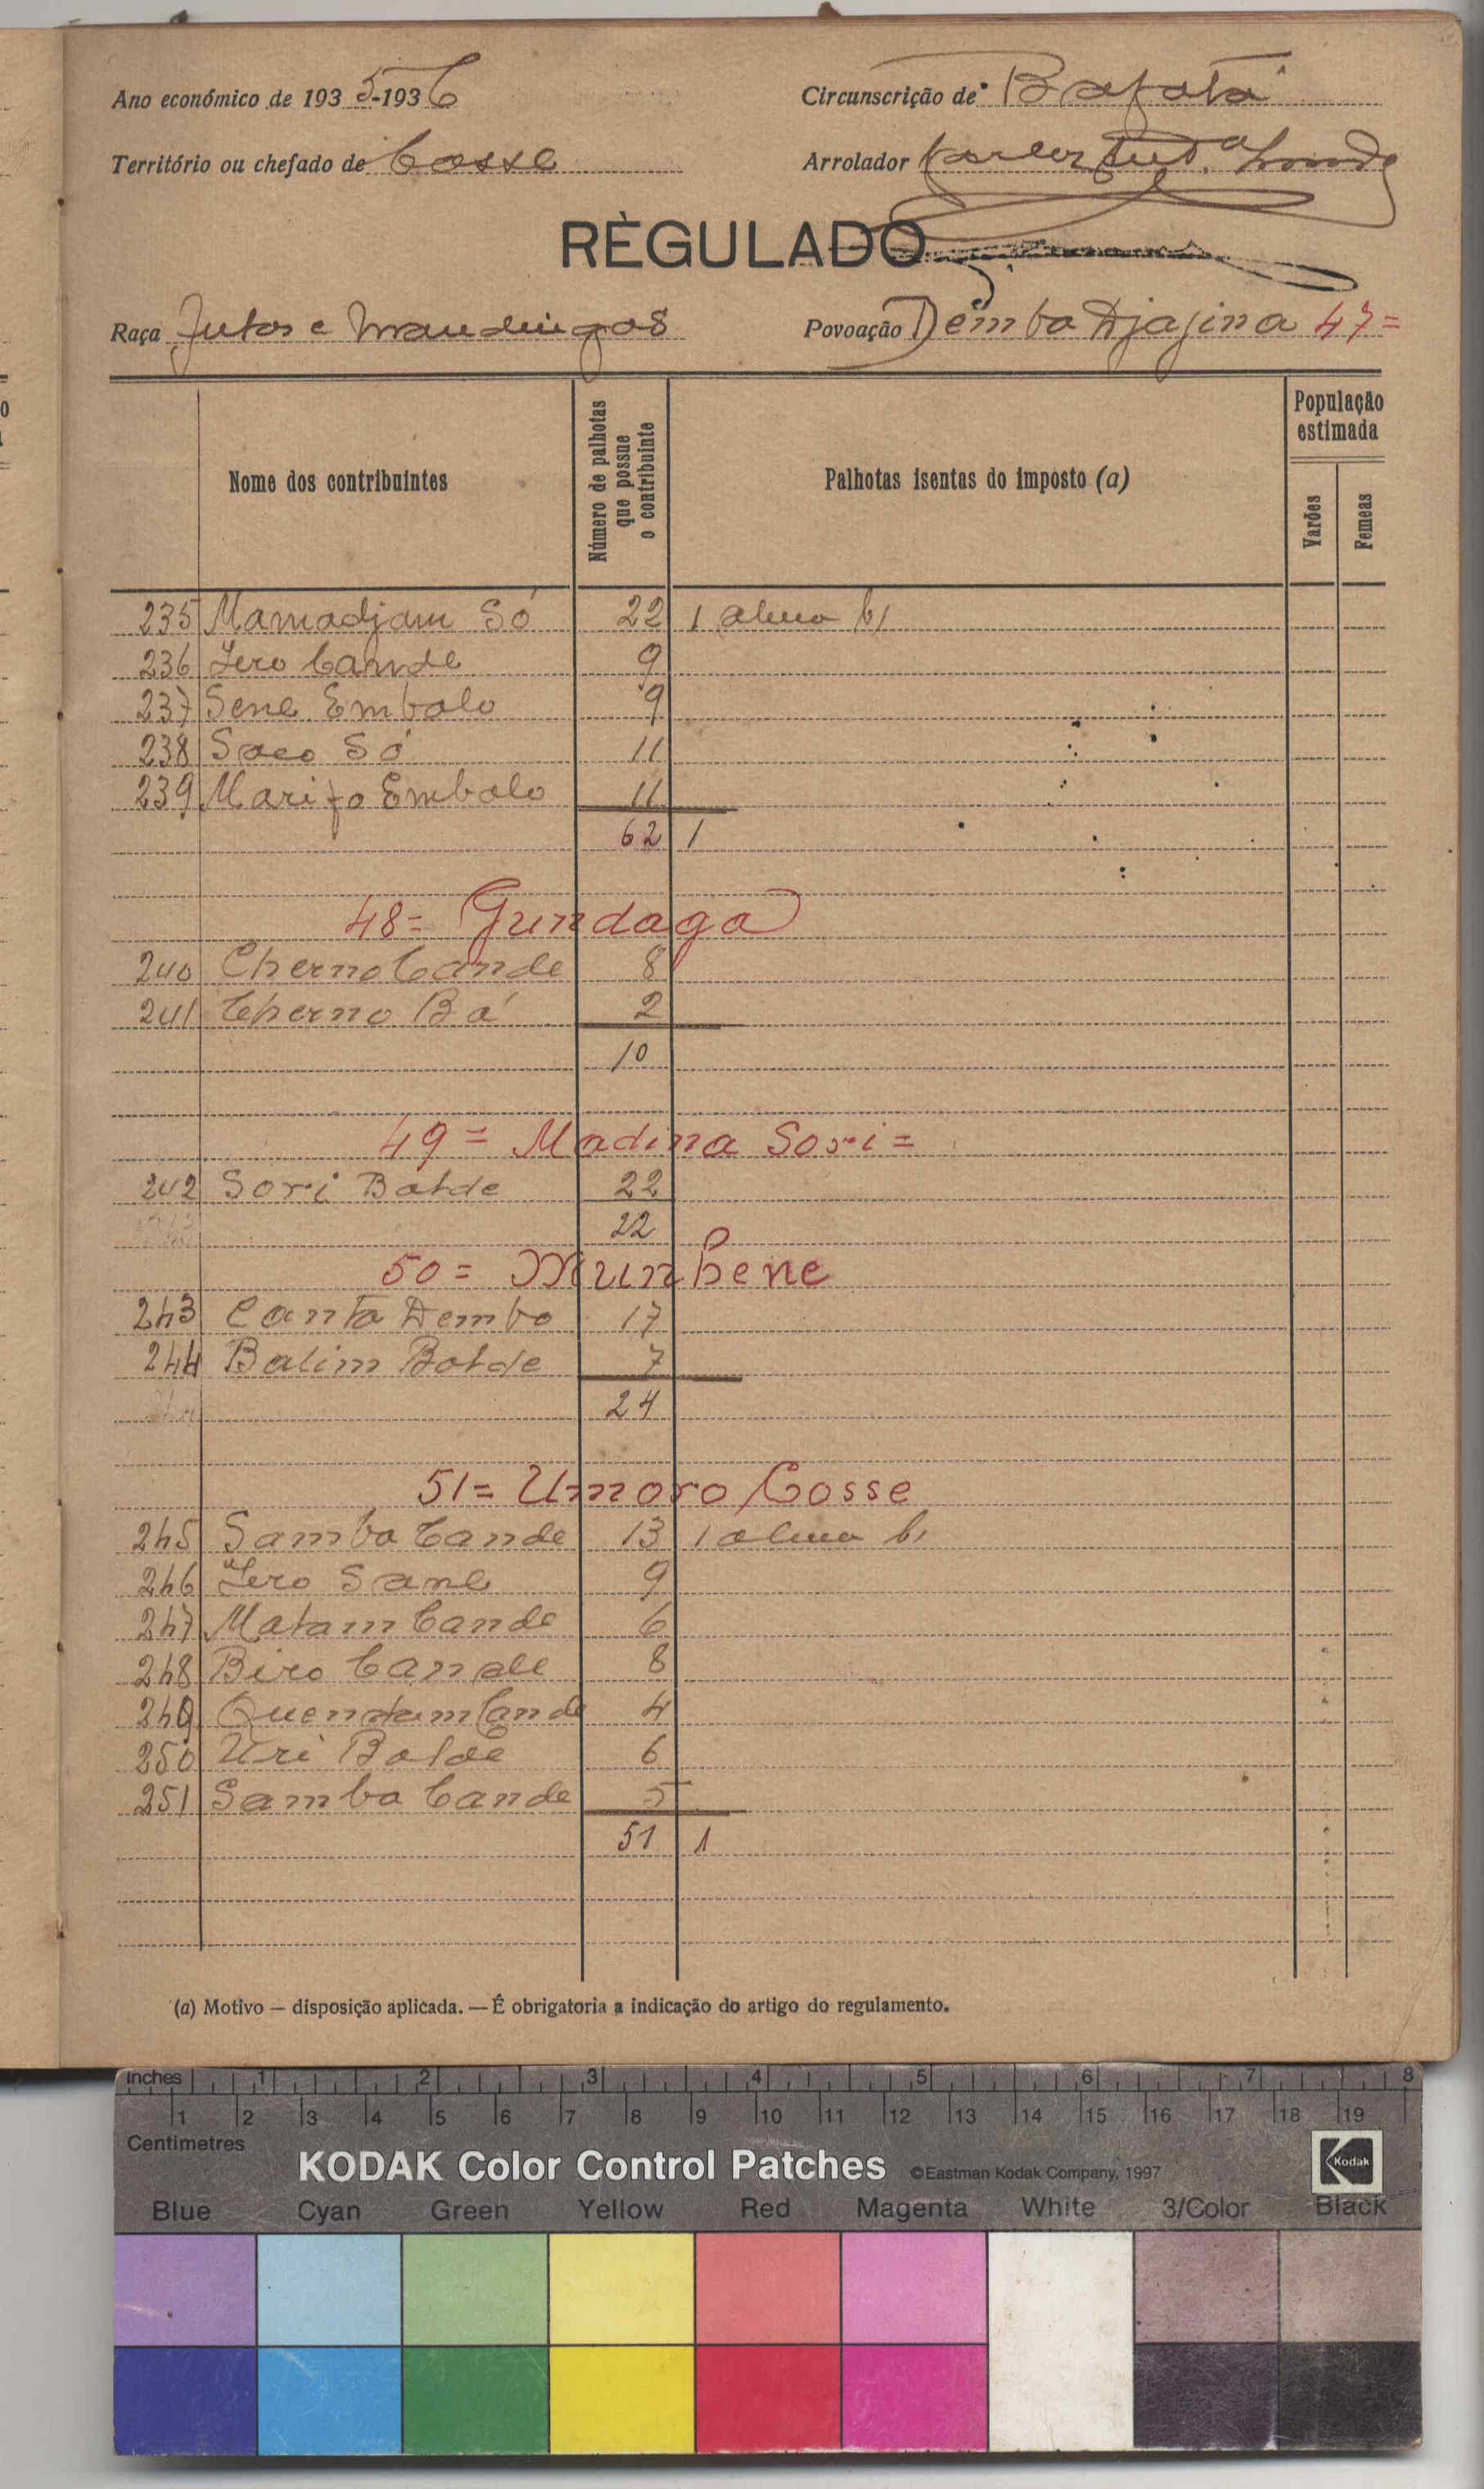 Ano económico de 1935-1936
Circunscrição de Bafatá
Território ou chefado de Cosse
Arrolador
RÈGULADO
Raça Futos e Mandingos
Povoação Demba Djajina 47=
Nome dos contribuintes
Número de palhotas que possue o contribuinte
Palhotas isentas do imposto (a)
População estimada
Varões
Femeas
235 Mamadjam Só 22 1 aluno b)
236 Iero Cande 9
237 Sene Embalo 9
238 Saco Só 11
239 Marifo Embalo 11
62 1
48= Gundaga
240 Cherno Cande 8
241 Cherno Bá 2
10
49= Madina Sori=
242 Sori Balde 22
22
50= Munhene
243 Canta Dembo 17
244 Balim Balde 7
24
51= Umoro Cosse
245 Samba Cande 13 1 aluno b)
246 Iero Sane 9
247 Matam Cande 6
248 Biro Cande 8
249 Cande 4
250 Uri Balde 6
251 Samba Cande 5
51 1
(a) Motivo — disposição aplicada. — É obrigatoria a indicação do artigo do regulamento.
Inches 1 2 3 4 5 6 7 8
1 2 3 4 5 6 7 8 9 10 11 12 13 14 15 16 17 18 19
Centimetres
KODAK Color Control Patches ©Eastman Kodak Company, 1997 Kodak
Blue Cyan Green Yellow Red Magenta White 3/Color Black